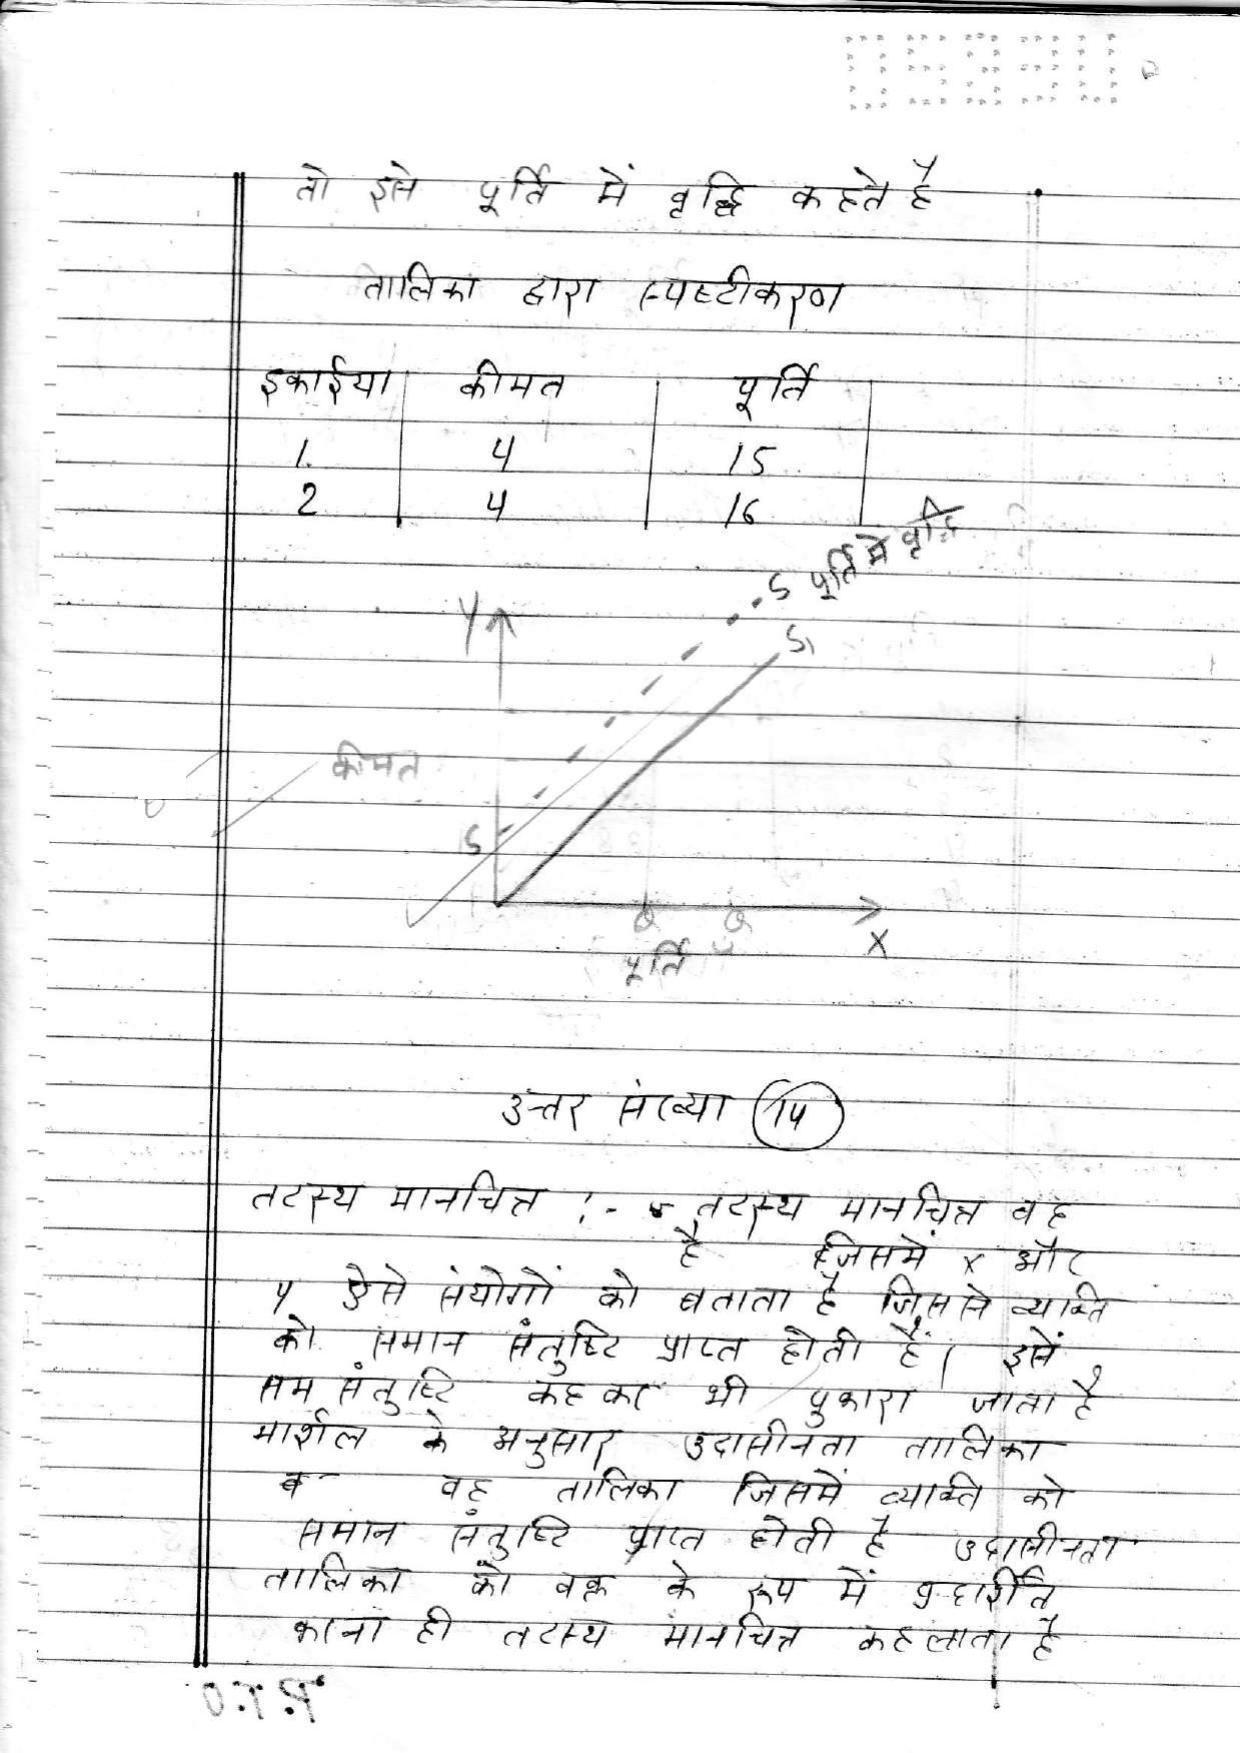 तो इसे पूर्ति में वृद्धि कहते है
तालिका द्वारा स्पष्टीकरण
इकाईया कीमत पूर्ति
1. 4 15
2 4 16
S पूर्ति में वृद्धि
Y
S1
कीमत
S
Q Q
पूर्ति
X
उत्तर संख्या 14
तटस्थ मानचित्र :- तटस्थ मानचित्र वह
है जिसमें x और
y ऐसे संयोगों को बताता है जिससे व्यक्ति
को समान संतुष्टि प्राप्त होती हैं। इसें
सम संतुष्टि कहकर भी पुकारा जाता है
मार्शल के अनुसार उदासीनता तालिका
वह तालिका जिसमें व्यक्ति को
समान संतुष्टि प्राप्त होती है उदासीनता
तालिका को वक्र के रूप में प्रदर्शित
करना ही तटस्थ मानचित्र कहलाता है
P.T.O